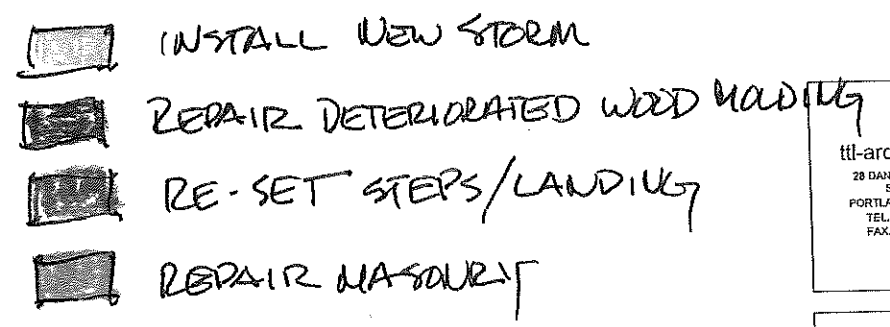 INSTALL NEW STORM
REPAIR DETERIORATED WOOD MOLDING
RE-SET STEPS/LANDING
REPAIR MASONRY
ttl-arc
28 DAN
S
PORTLA
TEL.
FAX.